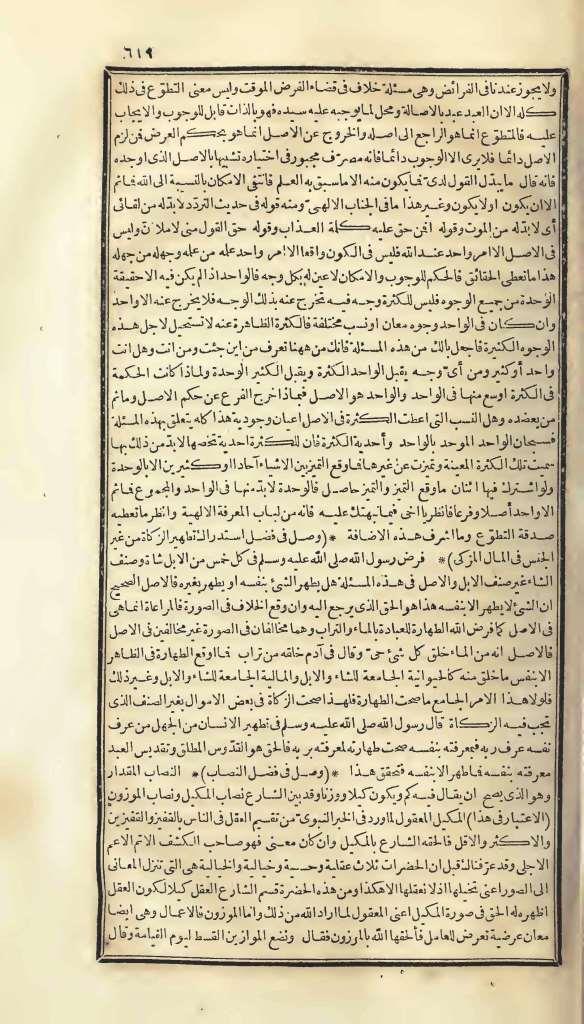 ٦١٩
ولا يجوز عندنا فى الفرائض وهى مسئلة خلاف فى قضاء الفرض الموقت وليس معنى التطوّع فى ذلك
كله الا ان العبد عبد بالاصالة ومحل لما يوجبه عليه سيده فهو بالذات قابل للوجوب والايجاب
عليه فالمتطوّع انما هو الراجع الى اصله والخروج عن الاصل انما هو بحكم العرض فمن لزم
الاصل دائما فلا يرى الا الوجوب دائما فانه مصرّف مجبور فى اختياره تشبيها بالاصل الذى اوجده
فانه قال ما يبدّل القول لدىّ فما يكون منه الا ماسبق به العلم فانتفى الامكان بالنسبة الى الله فما ثم
الا ان يكون او لا يكون وغير هذا ما فى الجناب الالهىّ ومنه قوله فى حديث التردّد لابدّ له من لقائى
أى لابدّ له من الموت وقوله افمن حق عليه كلة العذاب وقوله حق القول منى لاملأنّ وليس
فى الاصل الا امر واحد عند الله فليس فى الكون واقعا الا امر واحد علمه من علمه وجهله من جهله
هذا ما تعطى الحقائق فالحكم للوجوب والامكان لاعين له بكل وجه فالواحد اذا لم يكن فيه الاحقيقة
الوحدة من جميع الوجوه فليس للكثرة وجه فيه تخرج عنه بذلك الوجه فلا يخرج عنه الا واحد
وان كان فى الواحد وجوه معان اونسب مختلفة فالكثرة الظاهرة عنه لا تستحيل لاجل هذه
الوجوه الكثيرة فاجعل بالك من هذه المسئلة فانك من ههنا تعرف من اين جئت ومن انت وهل انت
واحد أوكثير ومن أىّ وجه يقبل الواحد الكثرة ويقبل الكثير الوحدة ولماذا كانت الحكمة
فى الكثرة اوسع منها فى الواحد والواحد هو الاصل فبماذا خرج الفرع عن حكم الاصل وما ثم
من يعضده وهل النسب التى اعطت الكثرة فى الاصل اعيان وجودية هذا كله يتعلق بهذه المسئلة
فسبحان الواحد الموحد بالواحد وأحدية الكثرة فان للكثرة احدية تخصها لابدّ من ذلك بها
سميت تلك الكثرة المعينة وتميزت عن غيرها فما وقع التمييز بين الاشياء آحادا او كثيرين الا بالوحدة
ولو اشترك فيها اثنان ماوقع التميز والتميز حاصل فالوحدة لابدّ منها فى الواحد والمجموع فما ثم
الا واحد أصلا وفرعا فانظر يا اخى فيما نبهتك عليه فانه من لباب المعرفة الالهية وانظر ما تعطيه
صدقة التطوّع وما اشرف هذه الاضافة *(وصل فى فضل استدراك تطهير الزكاة من غير
الجنس فى المال المزكى)* فرض رسول الله صلى الله عليه وسلم فى كل خمس من الابل شاة وصنف
الشاء غير صنف الابل والاصل فى هذه المسئلة هل يطهر الشئ بنفسه او يطهر بغيره فالاصل الصحيح
ان الشئ لا يطهر الا بنفسه هذا هو الحق الذى يرجع اليه وان وقع الخلاف فى الصورة فالمراعاة انما هى
فى الاصل كما فرض الله الطهارة للعبادة بالماء والتراب وهما مخالفان فى الصورة غير مخالفين فى الاصل
فالاصل انه من الماء خلق كل شئ حىّ وقال فى آدم خلقه من تراب فما اوقع الطهارة فى الظاهر
الا بنفس ما خلق منه كالحيوانية الجامعة للشاء والابل والمالية الجامعة للشاء والابل وغير ذلك
فلولا هذا الامر الجامع ما صحت الطهارة فلهذا صحت الزكاة فى بعض الاموال بغير الصنف الذى
تجب فيه الزكاة قال رسول الله صلى الله عليه وسلم فى تطهير الانسان من الجهل من عرف
نفسه عرف ربه فبمعرفته بنفسه صحت طهارته لمعرفته بربه فالحق هو القدّوس المطلق وتقديس العبد
معرفته بنفسه فما طهر الا بنفسه فتحقق هذا *(وصل فى فضل النصاب)* النصاب المقدار
وهو الذى يصح ان يقال فيه كم ويكون كيلا ووزنا وقد بين الشارع نصاب المكيل ونصاب الموزون
(الاعتبار فى هذا) المكيل المعقول لماورد فى الخبر النبوىّ من تقسيم العقل فى الناس بالقفيز والقفيزين
والاكثر والاقل فالحقه الشارع بالمكيل وان كان معنى فهو صاحب الكشف الاتم الاعم
الاجلى وقد عرّفناك قبل ان الحضرات ثلاث عقلية وحسية وخيالية والخيالية هى التى تنزل المعانى
الى الصور اعنى تتخيلها اذ لا نعقلها الا هكذا ومن هذه الحضرة قسم الشارع العقل كيلا لكون العقل
اظهره له الحق فى صورة المكيل اعنى المعقول لما اراد الله من ذلك وأما الموزون فالاعمال وهى ايضا
معان عرضية تعرض للعامل فألحقها الله بالموزون فقال ونضع الموازين القسط ليوم القيامة وقال